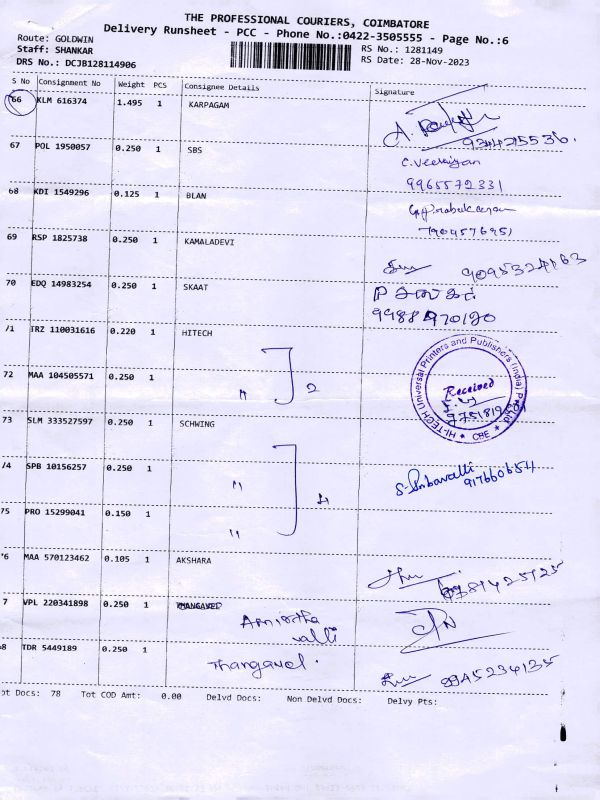 THE PROFESSIONAL COURIERS, COIMBATORE
Delivery Runsheet - PCC - Phone No.:0422-3505555 - Page No.:6
Route: GOLDWIN
Staff: SHANKAR RS No.: 1281149
DRS No.: DCJB128114906 RS Date: 28-Nov-2023
S No Consignment No Weight PCS Consignee Details Signature
66 KLM 616374 1.495 1 KARPAGAM
67 POL 1950057 0.250 1 SBS
C. Veeraiyan
9965572331
68 KDI 1549296 0.125 1 BLAN
7904576951
69 RSP 1825738 0.250 1 KAMALADEVI
9095324163
70 EDQ 14983254 0.250 1 SKAAT
9988470120
71 TRZ 110031616 0.220 1 HITECH
HI-TECH Universal Printers and Publishers (India) P Ltd
Received
CBE
72 MAA 104505571 0.250 1 " 2
73 SLM 333527597 0.250 1 SCHWING
74 SPB 10156257 0.250 1 "
9176606571
75 PRO 15299041 0.150 1 "
76 MAA 570123462 0.105 1 AKSHARA
7 VPL 220341898 0.250 1 THANGAVEL
Amirtha
valli
78 TDR 5449189 0.250 1 Thangavel.
9945234135
ot Docs: 78 Tot COD Amt: 0.00 Delvd Docs: Non Delvd Docs: Delvy Pts: